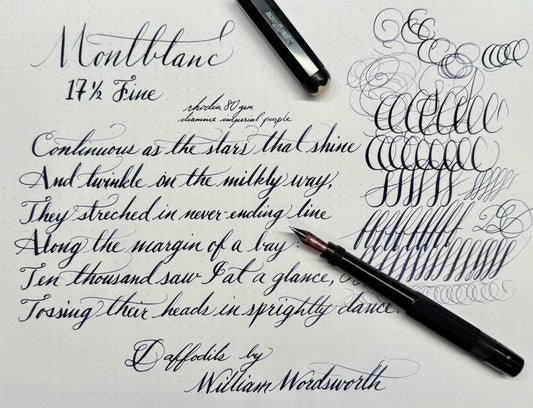 Montblanc
17½ Fine
rhodia 80 gsm
diamine imperial purple
Continuous as the stars that shine
And twinkle on the milkly way,
They streched in never-ending line
Along the margin of a bay:
Ten thousand saw I at a glance,
Tossing their heads in sprightly dance.
Daffodils by
William Wordsworth